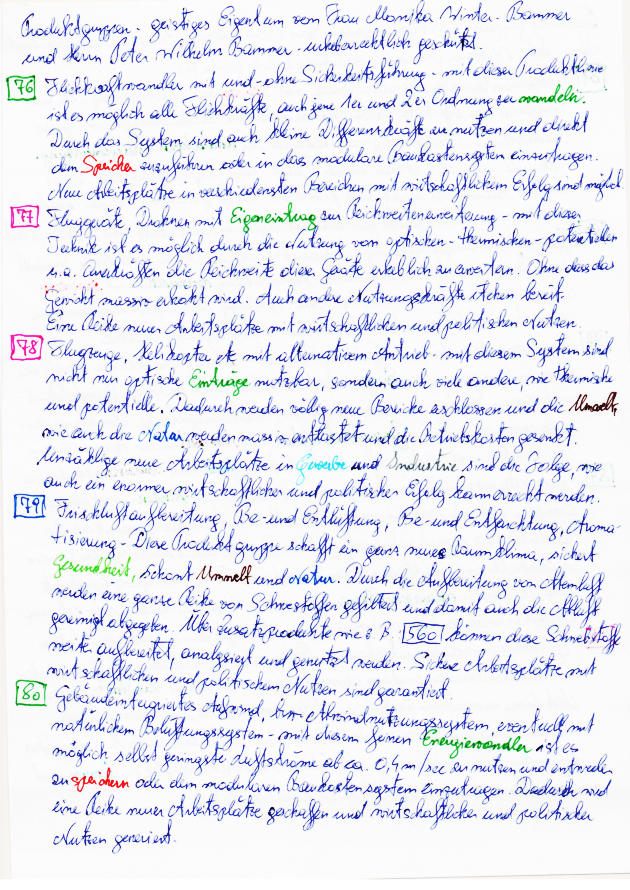 Produktgruppen - geistiges Eigentum von Frau Monika Winter-Bammer
und Herrn Peter Wilhelm Bammer - urheberrechtlich geschützt.
76 Fliehkraftwandler mit und-ohne Sicherheitsführung - mit dieser Produktlinie
ist es möglich alle Fliehkräfte, auch jene 1er und 2er Ordnung zu wandeln.
Durch das System sind auch kleine Differenzkräfte zu nutzen und direkt
dem Speicher zuzuführen oder in das modulare Baukastensystem einzutragen.
Neue Arbeitsplätze in verschiedensten Bereichen mit wirtschaftlichem Erfolg sind möglich.
77 Fluggeräte, Drohnen mit Eigeneintrag zur Reichweitenerweiterung - mit dieser
Technik ist es möglich durch die Nutzung von optischen - thermischen - potentiellen
u.a. die Reichweite dieser Geräte erheblich zu erweitern. Ohne dass das
Gewicht massiv erhöht wird. Auch andere Nutzungskräfte stehen bereit.
Eine Reihe neuer Arbeitsplätze mit wirtschaftlichen und politischen Nutzen.
78 Flugzeuge, Helikopter etc mit alternativem Antrieb - mit diesem System sind
nicht nur optische Einträge nutzbar, sondern auch viele andere, wie thermische
und potentielle. Dadurch werden völlig neue Bereiche erschlossen und die Umwelt,
wie auch die Natur werden massiv entlastet und die Betriebskosten gesenkt.
Unzählige neue Arbeitsplätze in Gewerbe und Industrie sind die Folge, wie
auch ein enormer wirtschaftlicher und politischer Erfolg kann erreicht werden.
79 Frischluftaufbereitung, Be-und Entlüftung, Be-und Entfeuchtung, Aroma-
tisierung - Diese Produktgruppe schafft ein ganz neues Raumklima, sichert
Gesundheit, schont Umwelt und Natur. Durch die Aufbereitung von Atemluft
werden eine ganze Reihe von Schadstoffen gefiltert und damit auch die Abluft
gereinigt abgegeben. Über Zusatzprodukte wie z B. 560 können diese Schadstoffe
weiter aufbereitet, analysiert und genutzt werden. Sichere Arbeitsplätze mit
wirtschaftlichen und politischem Nutzen sind garantiert.
80 Gebäudeintegriertes Aufwind, bzw Abwindnutzungssystem, eventuell mit
natürlichem Belüftungssystem - mit diesem feinen Energiewandler ist es
möglich selbst geringste Luftströme ab ca. 0,4 m/sec zu nutzen und entweder
zu speichern oder dem modularen Baukastensystem einzutragen. Dadurch wird
eine Reihe neuer Arbeitsplätze geschaffen und wirtschaftlicher und politischer
Nutzen generiert.